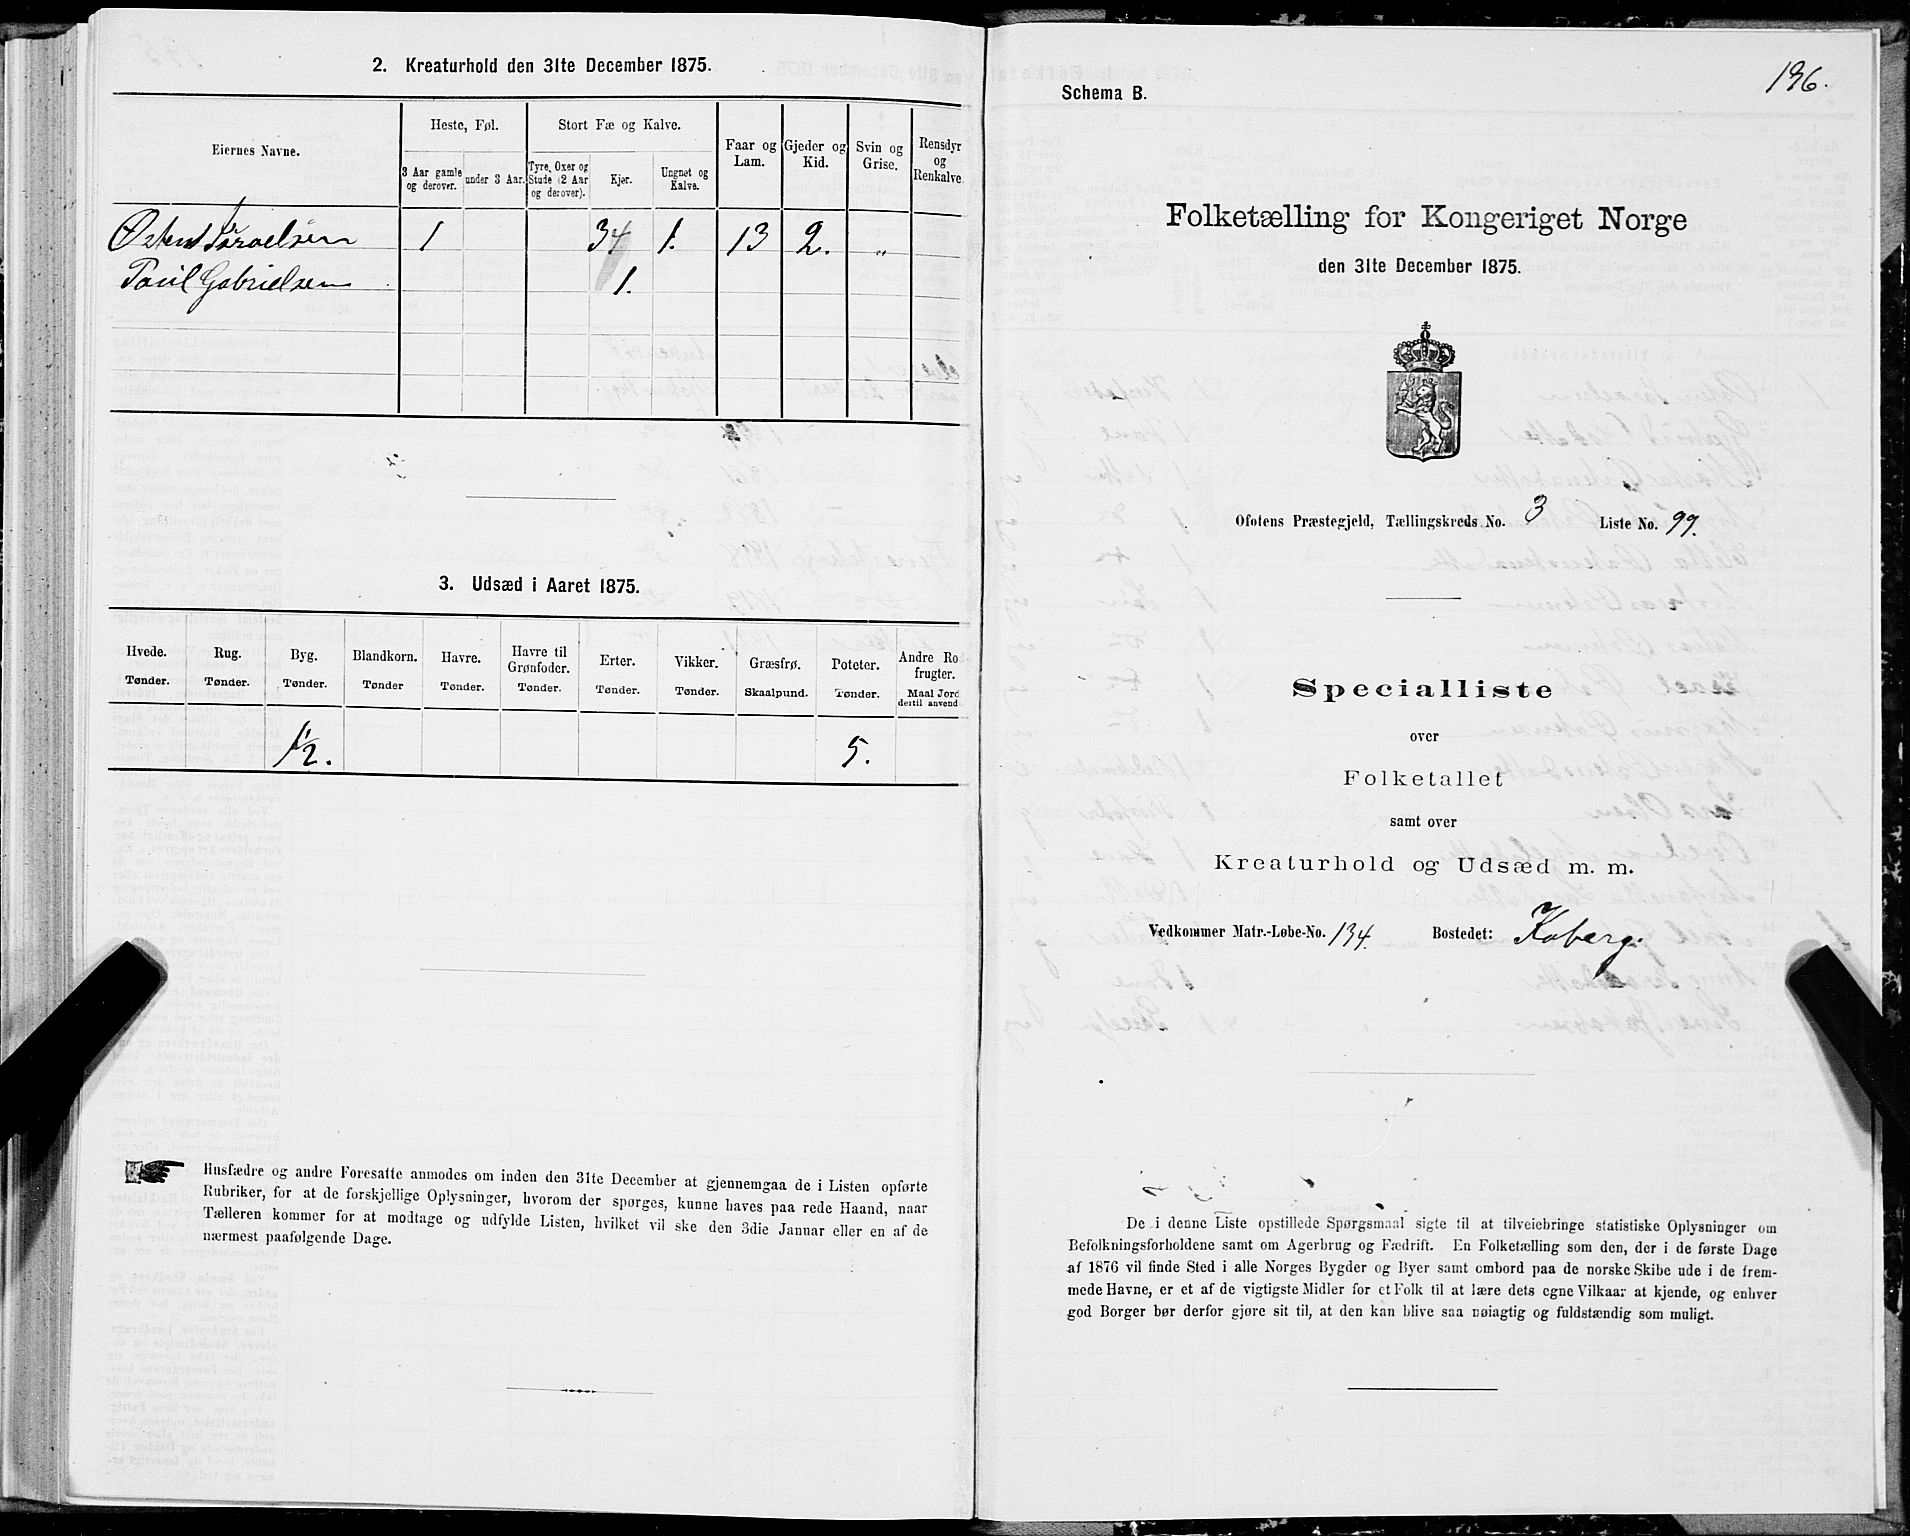 2. Kreaturhold den 31te December 1875.
Eiernes Navne.
Heste, Føl.
Stort Fæ og Kalve.
Faar og Lam.
Gjeder og Kid.
Svin og Grise.
Rensdyr og Renkalve
3 Aar gamle og derover.
under 3 Aar.
Tyre, Oxer og Stude (2 Aar og derover).
Kjør.
Ungnøt og Kalve.
Østen Israelsen 1 34 1. 13 2. "
Paul Gabrielsen 1.
3. Udsæd i Aaret 1875.
Hvede. Rug. Byg. Blandkorn. Havre. Havre til Grønfoder. Erter. Vikker. Græsfrø. Poteter. Andre Ro frugter.
Tønder. Tønder. Tønder. Tønder Tønder. Tønder. Tønder. Tønder. Skaalpund. Tønder. Maal Jord dertil anvend
1/2. 5.
Husfædre og andre Foresatte anmodes om inden den 31te December at gjennemgaa de i Listen opførte
Rubriker, for at de forskjellige Oplysninger, hvorom der spørges, kunne haves paa rede Haand, naar
Tælleren kommer for at modtage og udfylde Listen, hvilket vil ske den 3die Januar eller en af de
nærmest paafølgende Dage.
Schema B.
196.
Folketælling for Kongeriget Norge
den 31te December 1875.
Ofotens Præstegjeld, Tællingskreds No. 3 Liste No. 99.
Specialliste
over
Folketallet
samt over
Kreaturhold og Udsæd m. m.
Vedkommer Matr.-Løbe-No. 134. Bostedet: Koberg.
De i denne Liste opstillede Spørgsmaal sigte til at tilveiebringe statistiske Oplysninger om
Befolkningsforholdene samt om Agerbrug og Fædrift. En Folketælling som den, der i de første Dage
af 1876 vil finde Sted i alle Norges Bygder og Byer samt ombord paa de norske Skibe ude i de frem-
mede Havne, er et af de vigtigste Midler for et Folk til at lære dets egne Vilkaar at kjende, og enhver
god Borger bør derfor gjøre sit til, at den kan blive saa nøiagtig og fuldstændig som muligt.